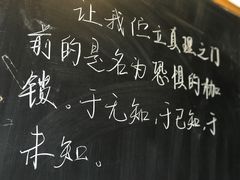 让我伫立真理之门
前的是名为恐惧的枷
锁。于无知,于已知,于
未知。